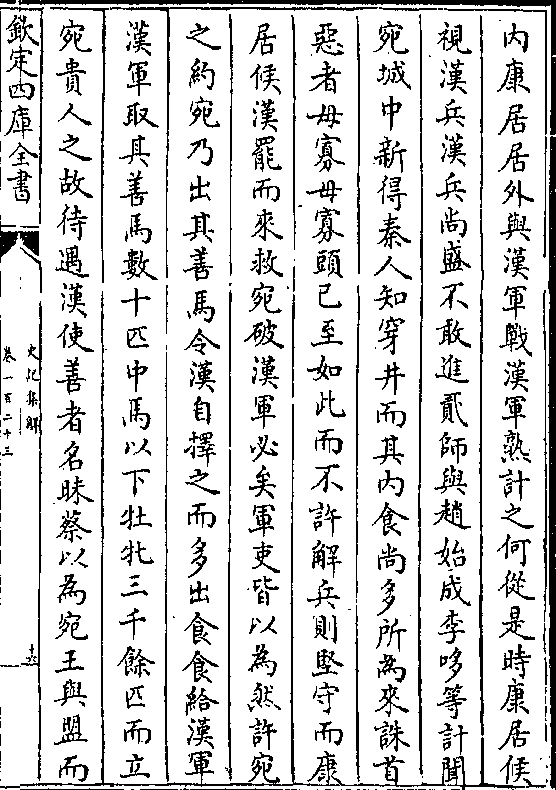 内康居居外與漢軍戰漢軍熟計之何從是時康居候
視漢兵漢兵尚盛不敢進貳師與趙始成李哆等計聞
宛城中新得秦人知穿井而其内食尚多所為來誅首
惡者毋寡毋寡頭已至如此而不許解兵則堅守而康
居候漢罷而來救宛破漢軍必矣軍吏皆以為然許宛
之約宛乃出其善馬令漢自擇之而多出食食給漢軍
漢軍取其善馬數十匹中馬以下牡牝三千餘匹而立
宛貴人之故待遇漢使善者名昧蔡以為宛王與盟而
欽定四庫全書
史記集解
卷一百二十三
十六